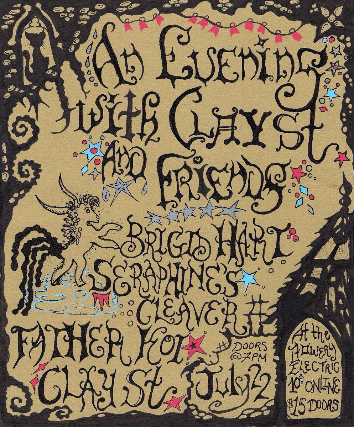 An Evening
with Clay St
AND
Friends
BRIGID HART
SERAPHINE'S
CLEAVER #
FATHER KOI
DOORS
@7PM
CLAY St
July 22
At the
Howery
ELECTRIC
10$ ONLINE
$15 DOORS